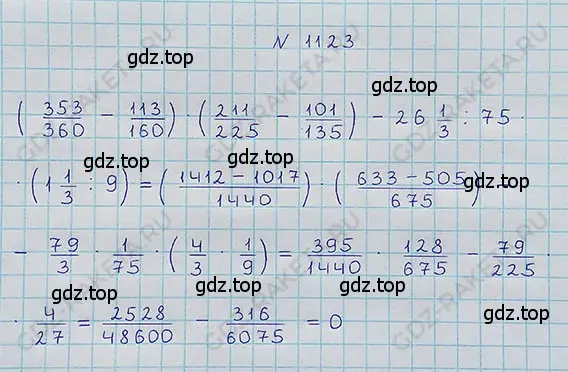 № 1123
gdz.top
gdz.top gdz.top
( 353/360 − 113/160 ) · ( 211/225 − 101/135 ) − 26 1/3 : 75 ·
gdz.top gdz.top
· ( 1 1/3 : 9 ) = ( (1412 − 1017)/1440 ) · ( (633 − 505)/675 ) −
gdz.top gdz.top
− 79/3 · 1/75 · ( 4/3 · 1/9 ) = 395/1440 · 128/675 − 79/225 ·
gdz.top gdz.top
· 4/27 = 2528/48600 − 316/6075 = 0
gdz.top
GDZ-RAKETA.RU